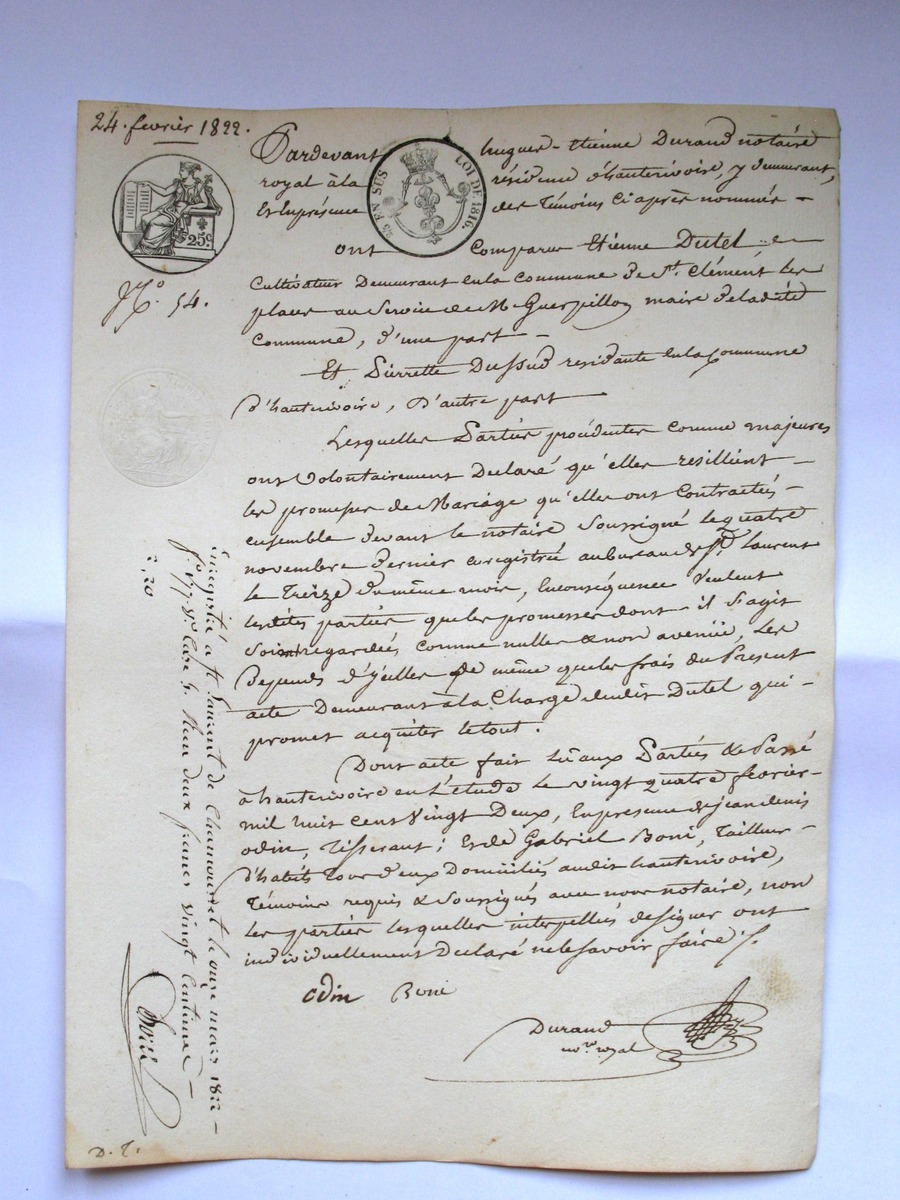 24. fevrier 1822.
Pardevant hugues-Etienne Durand notaire
royal à la résidence d'hauterivoire, y demeurant,
Et En présence des Témoins Ci après nommés -
25 EN SUS LOI DE 1816.
25c
N.º 54.
ont Comparu Etienne Dutel
Cultivateur Demeurant en la Commune De St. Clément les
places au Service de M. Guerpillon maire De ladite
Commune, d'une part -
Et Pierrette Dussud residante en la Commune
d'hauterivoire, D'autre part
Lesquelles Parties procédentes comme majeures
ont Volontairement Declaré qu'elles resilient -
les promesses de Mariage qu'elles ont Contractés -
ensemble Devant le notaire Soussigné le quatre
novembre Dernier enregistré au bureau de St. Laurent
le Treize Du même mois, En conséquence Veulent
lesdites parties que les promesses dont - il S'agit
Soient regardées comme nulles & non avenüe, Les
Depends d'ycelles De même que les frais du Present
acte Demeurant à la Charge dudit Dutel qui -
promet acquiter le tout.
Dont acte fait Lû aux Parties & Passé
à hauterivoire en l'étude le vingt quatre fevrier -
mil huit cent Vingt Deux, En presence de jean denis
odin, Tisserant; Et de Gabriel Boni, Tailleur -
d'habits Tous d'eux Domiciliés audit hauterivoire,
Témoins requis & Soussignés avec nous notaire, non
les parties lesquelles interpellées de signer ont
individuellement Declaré ne le savoir faire
odin Boni
Durand
nore royal
Enregistré a St Laurent de Chamousset le onze mars 1822 -
fo 177 vo Case 5. Reçu deux francs vingt Centimes -
2,20
D. T.